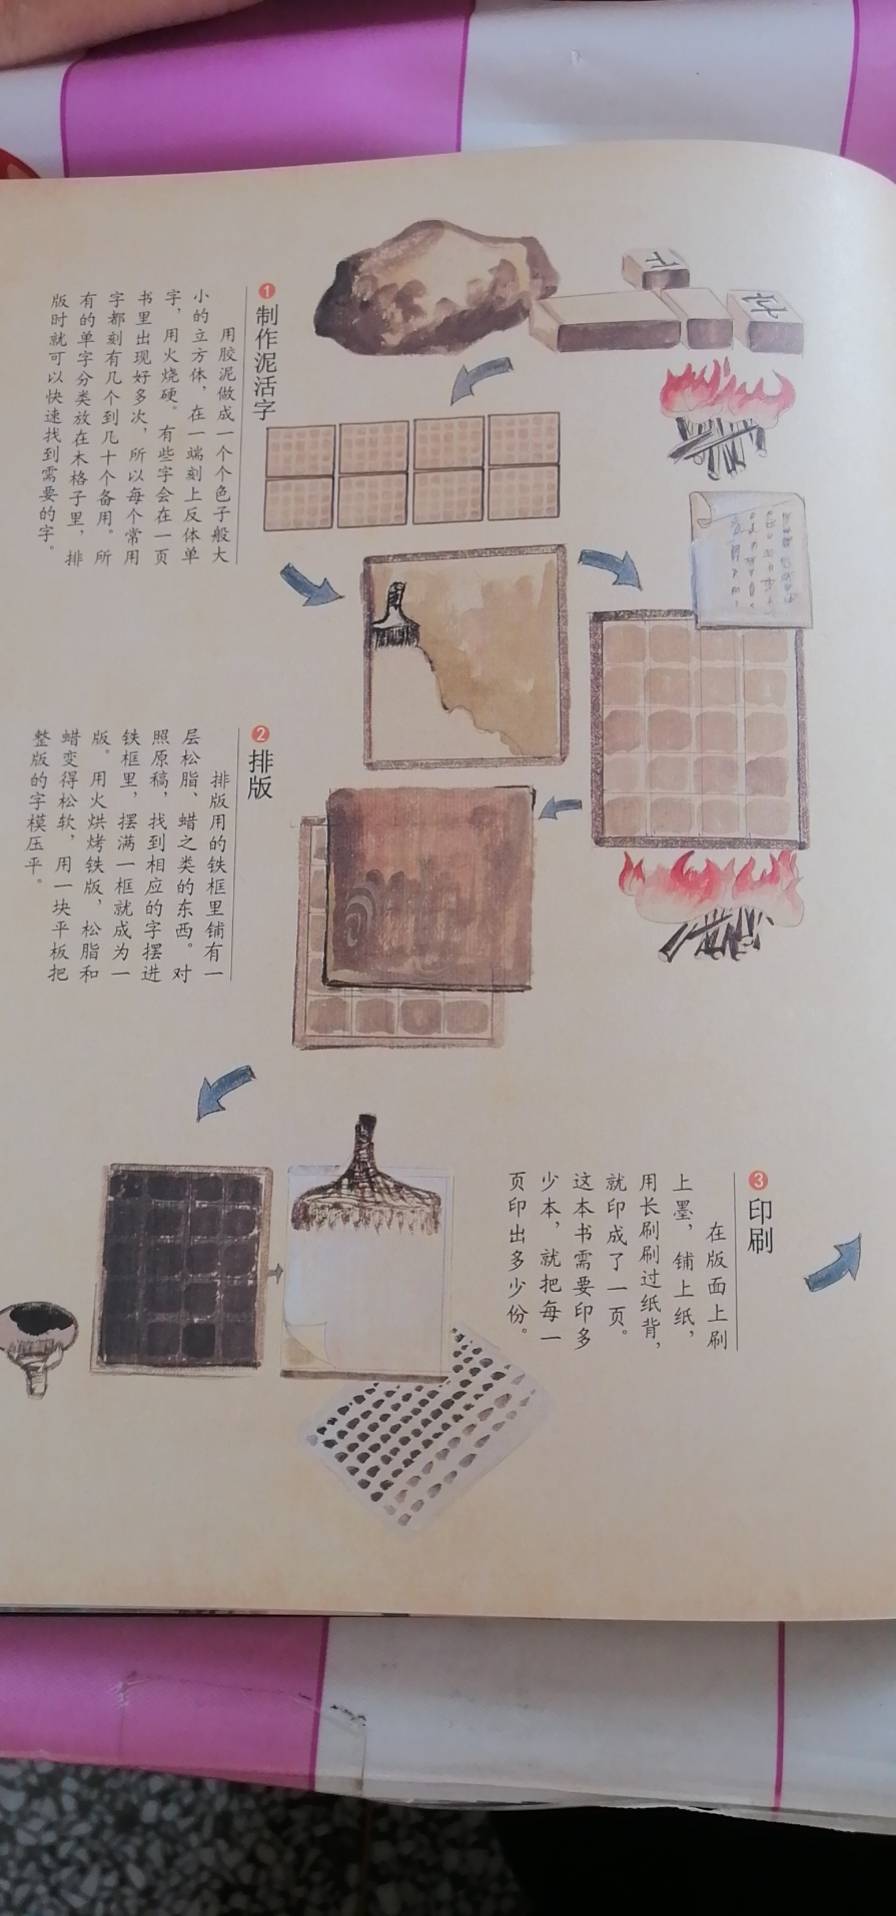 1 制作泥活字
用胶泥做成一个个色子般大
小的立方体，在一端刻上反体单
字，用火烧硬。有些字会在一页
书里出现好多次，所以每个常用
字都刻有几个到几十个备用。所
有的单字分类放在木格子里，排
版时就可以快速找到需要的字。
2 排版
排版用的铁框里铺有一
层松脂、蜡之类的东西。对
照原稿，找到相应的字摆进
铁框里，摆满一框就成为一
版。用火烘烤铁版，松脂和
蜡变得松软，用一块平板把
整版的字模压平。
3 印刷
在版面上刷
上墨，铺上纸，
用长刷刷过纸背，
就印成了一页。
这本书需要印多
少本，就把每一
页印出多少份。